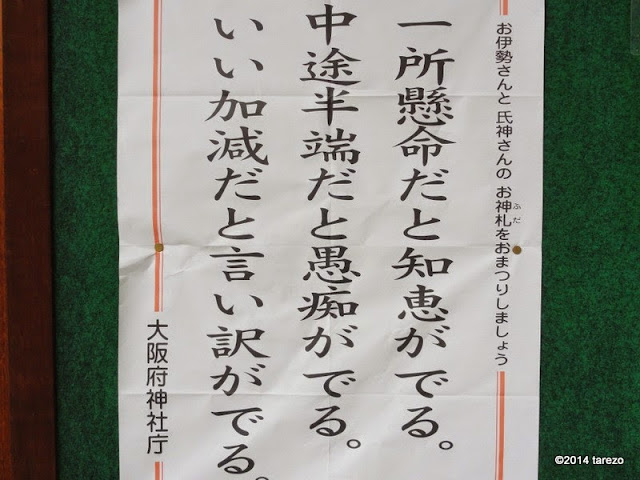 お伊勢さんと 氏神さんの お神札をおまつりしましょう
ふだ
一所懸命だと知恵がでる。
中途半端だと愚痴がでる。
いい加減だと言い訳がでる。
大阪府神社庁
©2014 tarezo